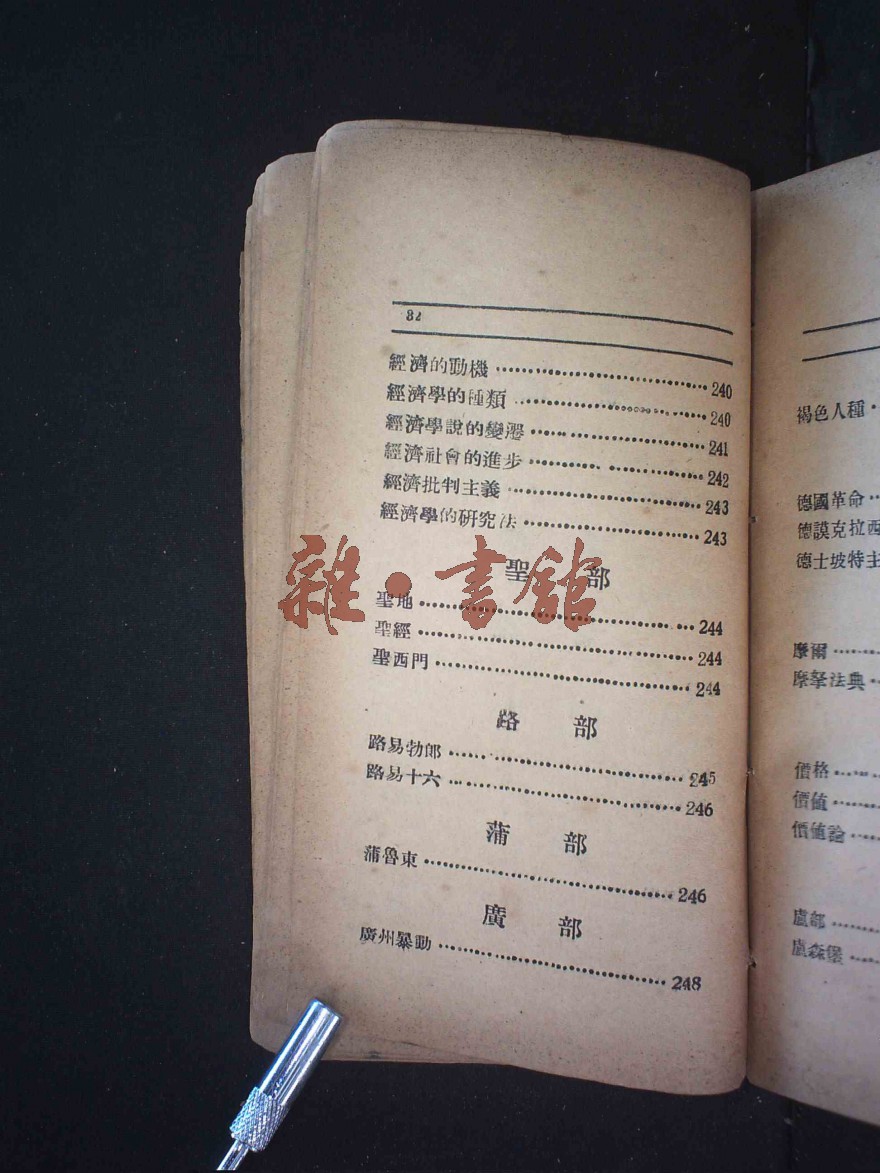 82
經濟的動機 240
經濟學的種類 240
經濟學說的變遷 241
經濟社會的進步 242
經濟批判主義 243
經濟學的研究法 243
聖 部
聖地 244
聖經 244
聖西門 244
路 部
路易勃郎 245
路易十六 246
蒲 部
蒲魯東 246
廣 部
廣州暴動 248
雜·書館
褐色人種
德國革命
德謨克拉西
德士坡特主
摩爾
摩拏法典
價格
價值
價值論
盧梭
盧森堡